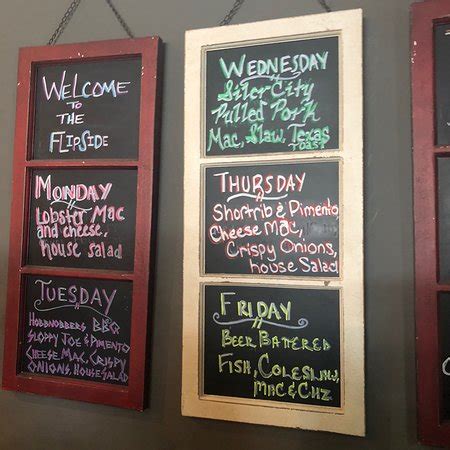 WELCOME
TO THE
FLIPSIDE
MONDAY
Lobster Mac
and cheese,
house salad
TUESDAY
HOBNOBBERS BBQ
SLOPPY JOE & PIMENTO
CHEESE MAC, CRISPY
ONIONS, HOUSE SALAD
WEDNESDAY
Siler City
Pulled Pork
Mac, Slaw, Texas
Toast
THURSDAY
Shortrib & Pimento
Cheese Mac,
Crispy Onions,
house Salad
FRIDAY
BEER BATTERED
FISH, COLESLAW,
MAC & CHZ